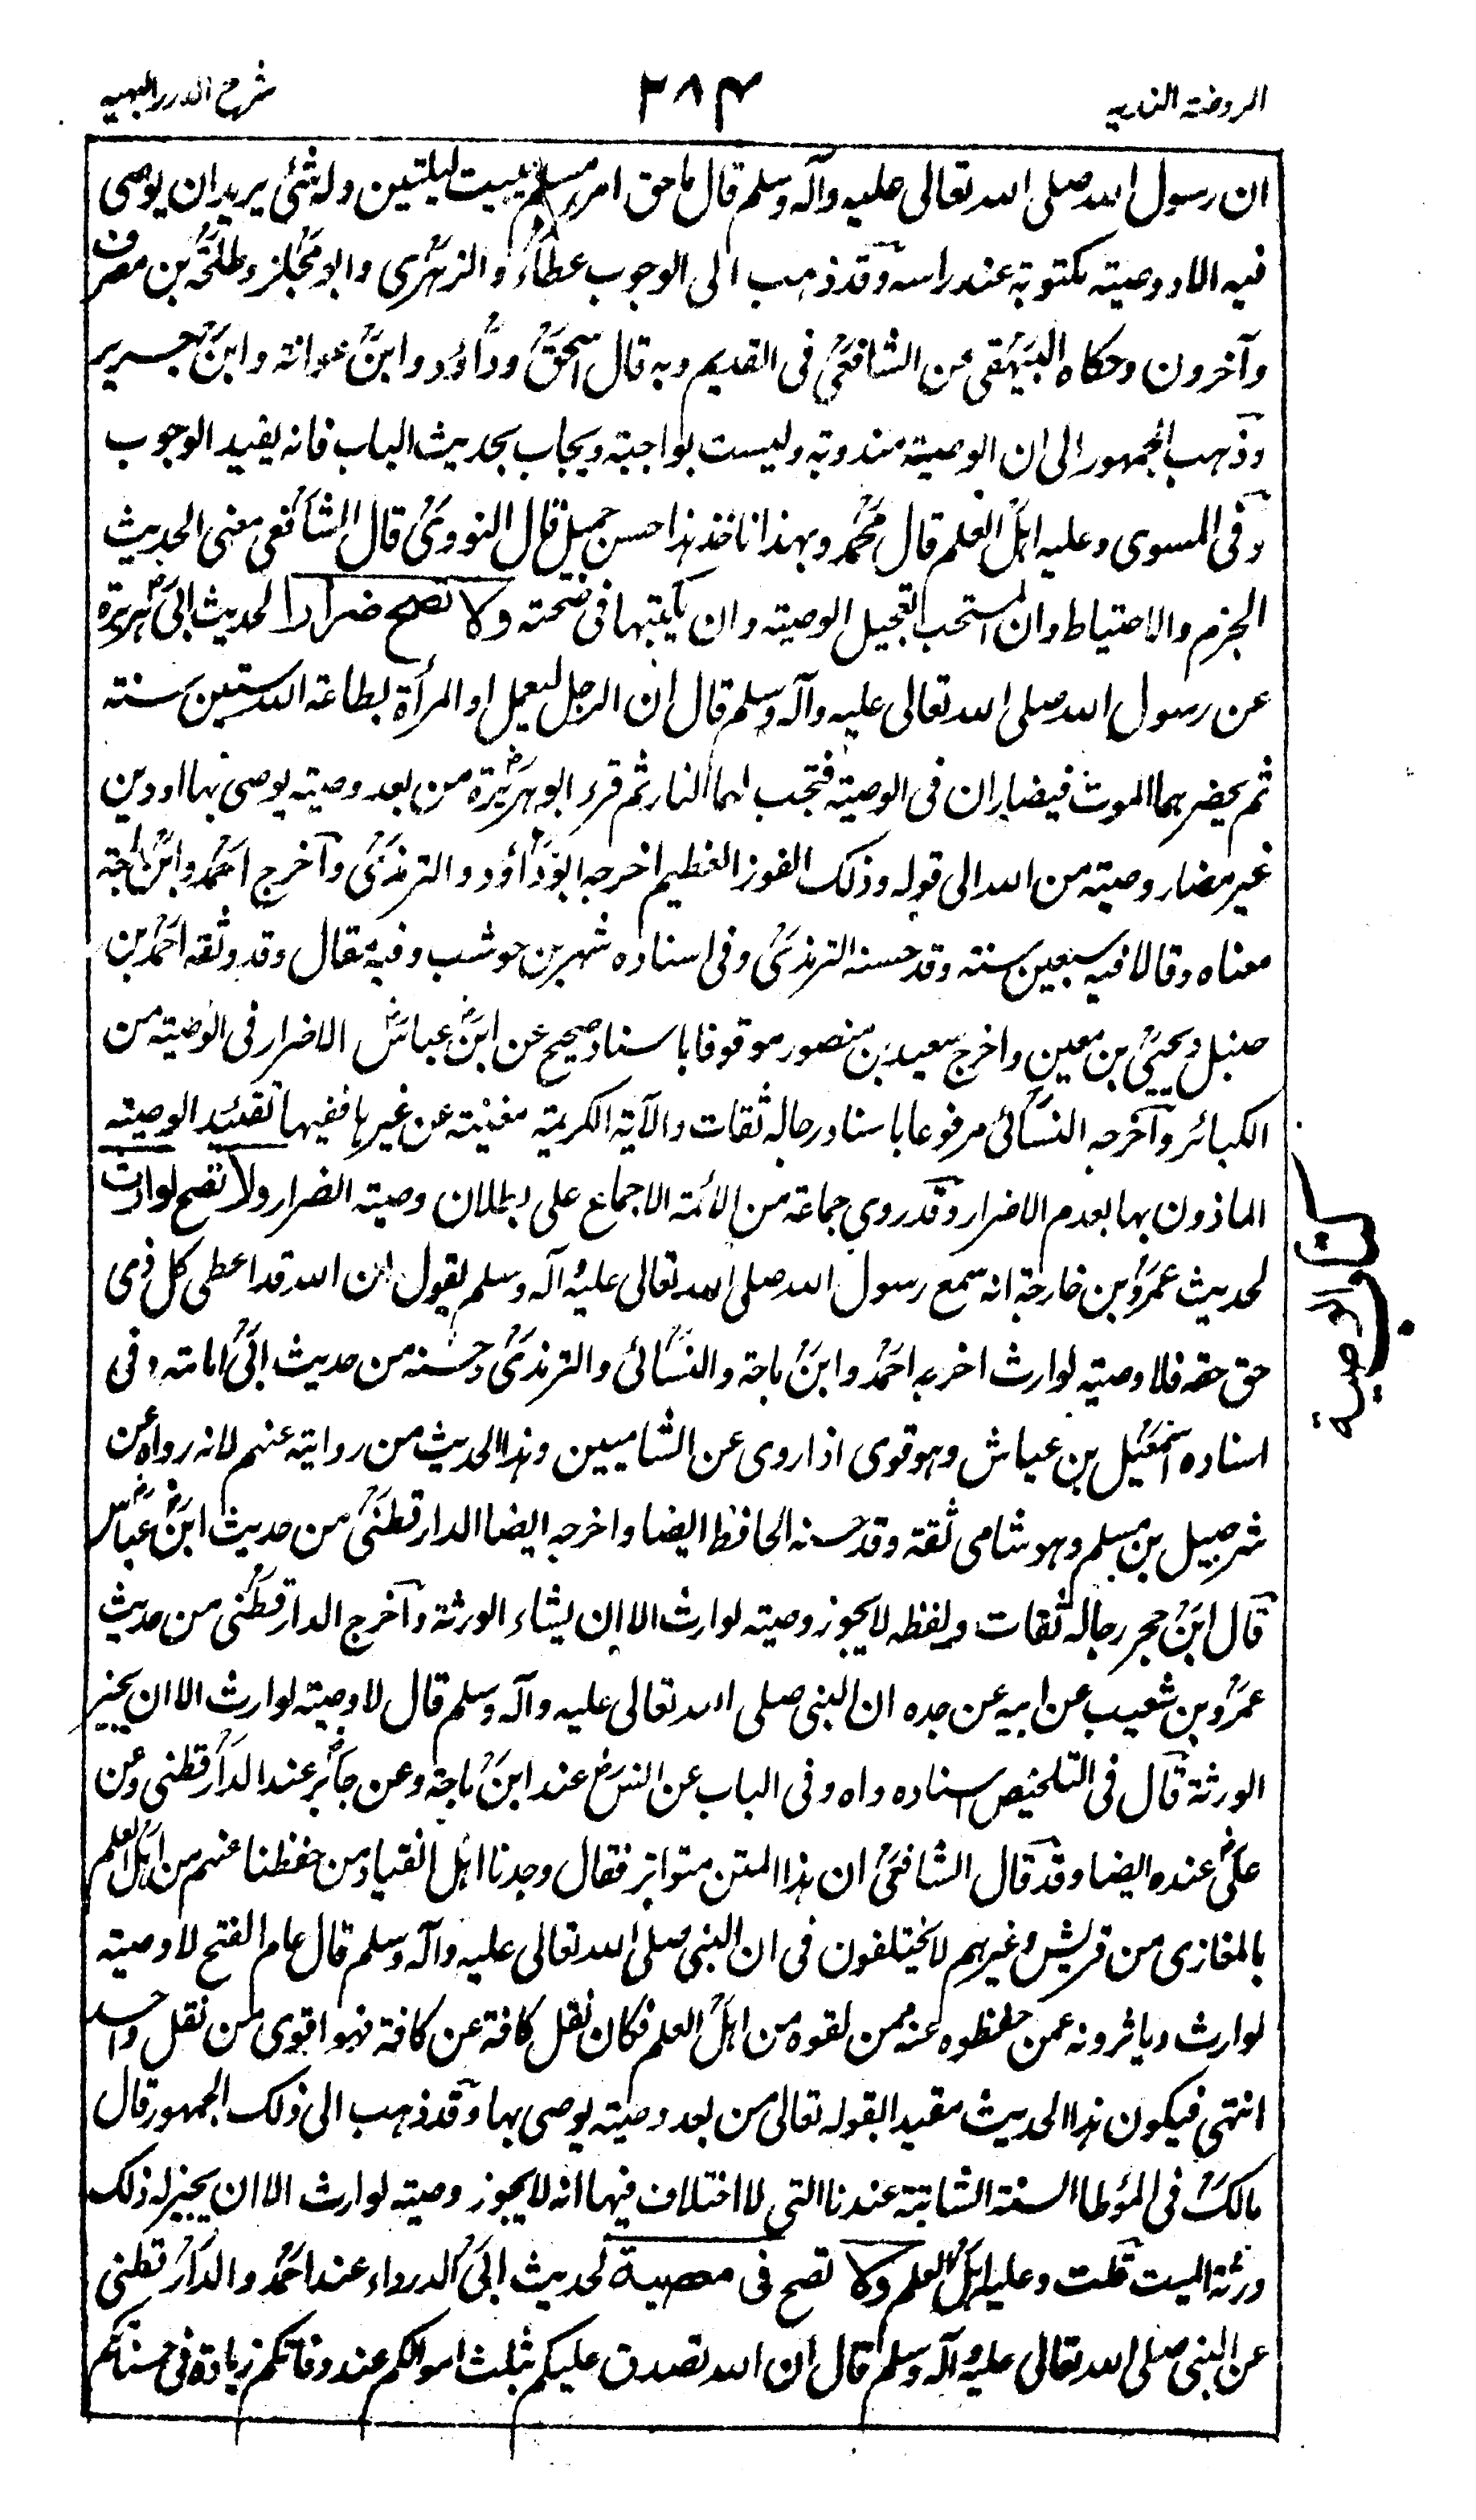 الروضة الندية
٢٨٤
شرح الدرر البهية
ان رسول الله صلى الله تعالى عليه وآله وسلم قال ما حق امرء مسلم يبيت ليلتين وله شئ يريد ان يوصى
فيه الا ووصيته مكتوبة عند راسه وقد ذهب الى الوجوب عطاء والزهرى وابو مجلز وطلحة بن مصرف
وآخرون وحكاه البيهقى عن الشافعى فى القديم وبه قال اسحق وداؤد وابن عوانة وابن جرير
وذهب الجمهور الى ان الوصية مندوبة وليست بواجبة ويجاب بحديث الباب فانه يفيد الوجوب
وفى المسوى وعليه اهل العلم قال محمد وبهذا ناخذ هذا حسن جميل قال النووى قال الشافعى معنى الحديث
الجزم والاحتياط وان المستحب تعجيل الوصية وان يكتبها فى صحته ولا تصح ضرارا لحديث ابى هريرة
عن رسول الله صلى الله تعالى عليه وآله وسلم قال ان الرجل ليعمل او المرأة بطاعة الله ستين سنة
ثم يحضرهما الموت فيضاران فى الوصية فتجب لهما النار ثم قرء ابو هريرة من بعد وصية يوصى بها او دين
غير مضار وصية من الله الى قوله وذلك الفوز العظيم اخرجه ابو داؤد والترمذى وآخرج احمد وابن ماجة
معناه وقالا فيه سبعين سنة وقد حسنه الترمذى وفى اسناده شهر بن حوشب وفيه مقال وقد وثقه احمد بن
حنبل ويحيى بن معين واخرج سعيد بن منصور موقوفا باسناد صحيح عن ابن عباس الاضرار فى الوصية من
الكبائر وآخرجه النسائى مرفوعا باسناد رجاله ثقات والآية الكريمة مغنية عن غيرها ففيها تقئيد الوصية
الماذون بها بعدم الاضرار وقد روى جماعة من الائمة الاجماع على بطلان وصية الضرار ولا تصح لوارث
لحديث عمرو بن خارجة انه سمع رسول الله صلى الله تعالى عليه وآله وسلم يقول ان الله قد اعطى كل ذى
حق حقه فلا وصية لوارث اخرجه احمد وابن ماجة والنسائى والترمذى وحسنه من حديث ابى امامة وفى
اسناده اسمعيل بن عياش وهو قوى اذا روى عن الشاميين وهذا الحديث من روايته عنهم لانه رواه عن
شرحبيل بن مسلم وهو شامى ثقة وقد حسنه الحافظ ايضا واخرجه ايضا الدارقطنى من حديث ابن عباس
قال ابن حجر رجاله ثقات ولفظه لا يجوز وصية لوارث الا ان يشاء الورثة وآخرج الدارقطنى من حديث
عمرو بن شعيب عن ابيه عن جده ان النبى صلى الله تعالى عليه وآله وسلم قال لا وصية لوارث الا ان يجيز
الورثة قال فى التلخيص اسناده واه وفى الباب عن انس عند ابن ماجة وعن جابر عند الدارقطنى وعن
على عنده ايضا وقد قال الشافعى ان هذا المتن متواتر فقال وجدنا اهل الفتيا ومن حفظنا عنهم من اهل العلم
بالمغازى من قريش وغيرهم لا يختلفون فى ان النبى صلى الله تعالى عليه وآله وسلم قال عام الفتح لا وصية
لوارث وياثرونه عمن حفظوه عنه ممن لقوه من اهل العلم فكان نقل كافة عن كافة فهو اقوى من نقل واحد
انتهى فيكون هذا الحديث مقيدا لقوله تعالى من بعد وصية يوصى بها وقد ذهب الى ذلك الجمهور قال
مالك فى المؤطا السنة الثابتة عندنا التى لا اختلاف فيها انه لا يجوز وصية لوارث الا ان يجيز له ذلك
ورثة الميت قلت وعليه اهل العلم ولا تصح فى معصية لحديث ابى الدرداء عند احمد والدارقطنى
عن النبى صلى الله تعالى عليه وآله وسلم قال ان الله تصدق عليكم بثلث اموالكم عند وفاتكم زيادة فى حسناتكم
كتاب الوصية